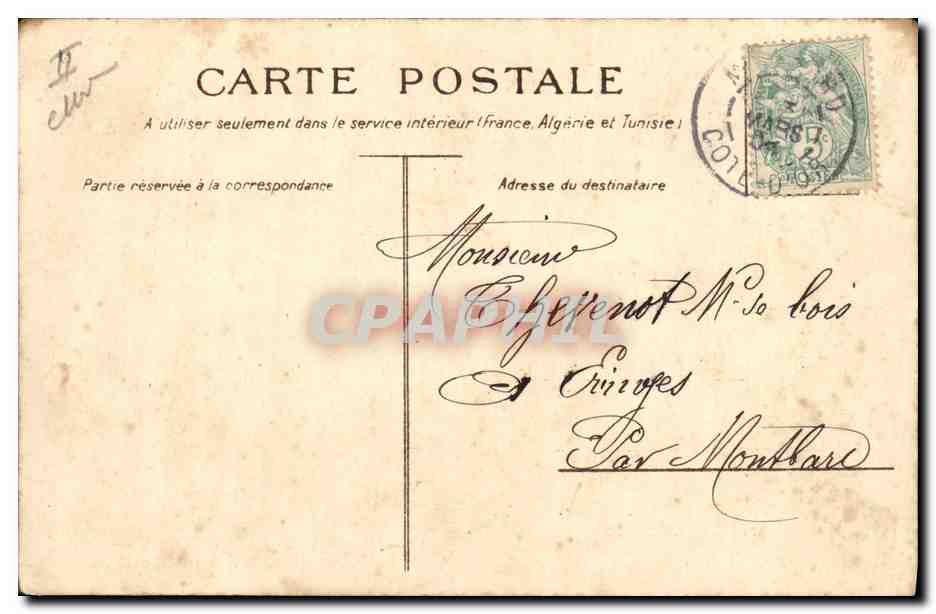 II
CARTE POSTALE
A utiliser seulement dans le service intérieur (France, Algérie et Tunisie)
Partie réservée à la correspondance
Adresse du destinataire
MARS
07
COTE D'OR
Monsieur
Thevenot Md de bois
à
Par Montbard
CPAPHIL